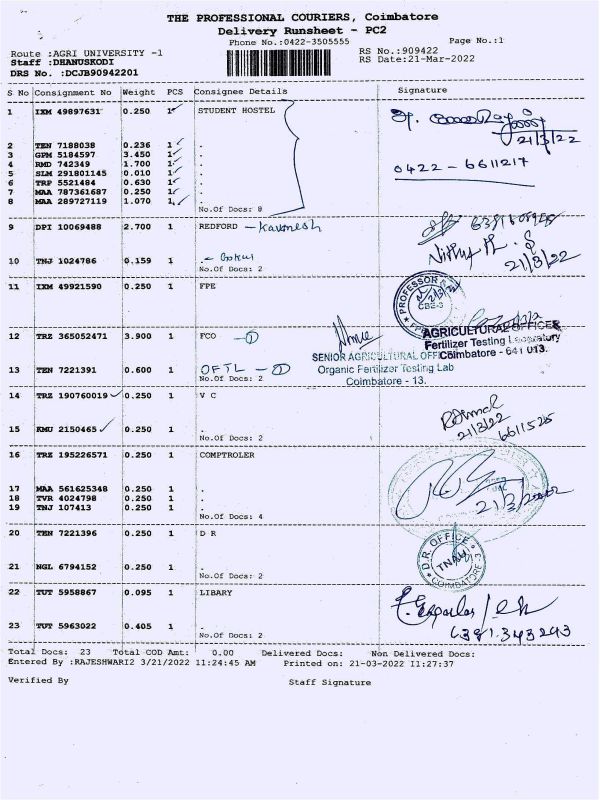 THE PROFESSIONAL COURIERS, Coimbatore
Delivery Runsheet - PC2
Phone No.:0422-3505555
Page No.:1
Route :AGRI UNIVERSITY -1
RS No.:909422
Staff :DHANUSKODI
RS Date:21-Mar-2022
DRS No. :DCJB90942201
S No Consignment No Weight PCS Consignee Details Signature
1 IXM 49897631 0.250 1 STUDENT HOSTEL
21/3/22
2 TEN 7188038 0.236 1 .
3 GPM 5184597 3.450 1 .
4 RMD 742349 1.700 1 .
0422 - 6611217
5 SLM 291801145 0.010 1 .
6 TRP 5521484 0.630 1 .
7 MAA 787361687 0.250 1 .
8 MAA 289727119 1.070 1 .
No.Of Docs: 8
9 DPI 10069488 2.700 1 REDFORD - Kavinesh
10 TNJ 1024786 0.159 1 . - Gokul
21/3/22
No.Of Docs: 2
11 IXM 49921590 0.250 1 FPE
PROFESSOR
CBE-3
12 TRZ 365052471 3.900 1 FCO - 1
AGRICULTURAL OFFICER
Fertilizer Testing Laboratory
Coimbatore - 641 013.
SENIOR AGRICULTURAL OFFICER
Organic Fertilizer Testing Lab
Coimbatore - 13.
13 TEN 7221391 0.600 1 OFTL - 1
No.Of Docs: 2
14 TRZ 190760019 0.250 1 V C
21/3/22
6611525
15 KMU 2150465 0.250 1 .
No.Of Docs: 2
16 TRZ 195226571 0.250 1 COMPTROLER
17 MAA 561625348 0.250 1 .
18 TVR 4024798 0.250 1 .
21/3/2022
19 TNJ 107413 0.250 1 .
No.Of Docs: 4
20 TEN 7221396 0.250 1 D R
D.R. OFFICE
TNAU
COIMBATORE-3
21 NGL 6794152 0.250 1 .
No.Of Docs: 2
22 TUT 5958867 0.095 1 LIBARY
23 TUT 5963022 0.405 1 .
No.Of Docs: 2
Total Docs: 23 Total COD Amt: 0.00 Delivered Docs: Non Delivered Docs:
Entered By :RAJESHWARI2 3/21/2022 11:24:45 AM Printed on: 21-03-2022 11:27:37
Verified By Staff Signature